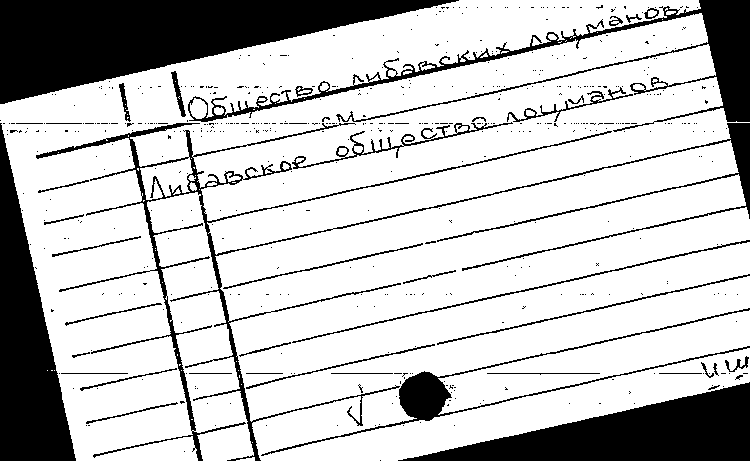 Общество либавских лоцманов.
см.
Либавское общество лоцманов